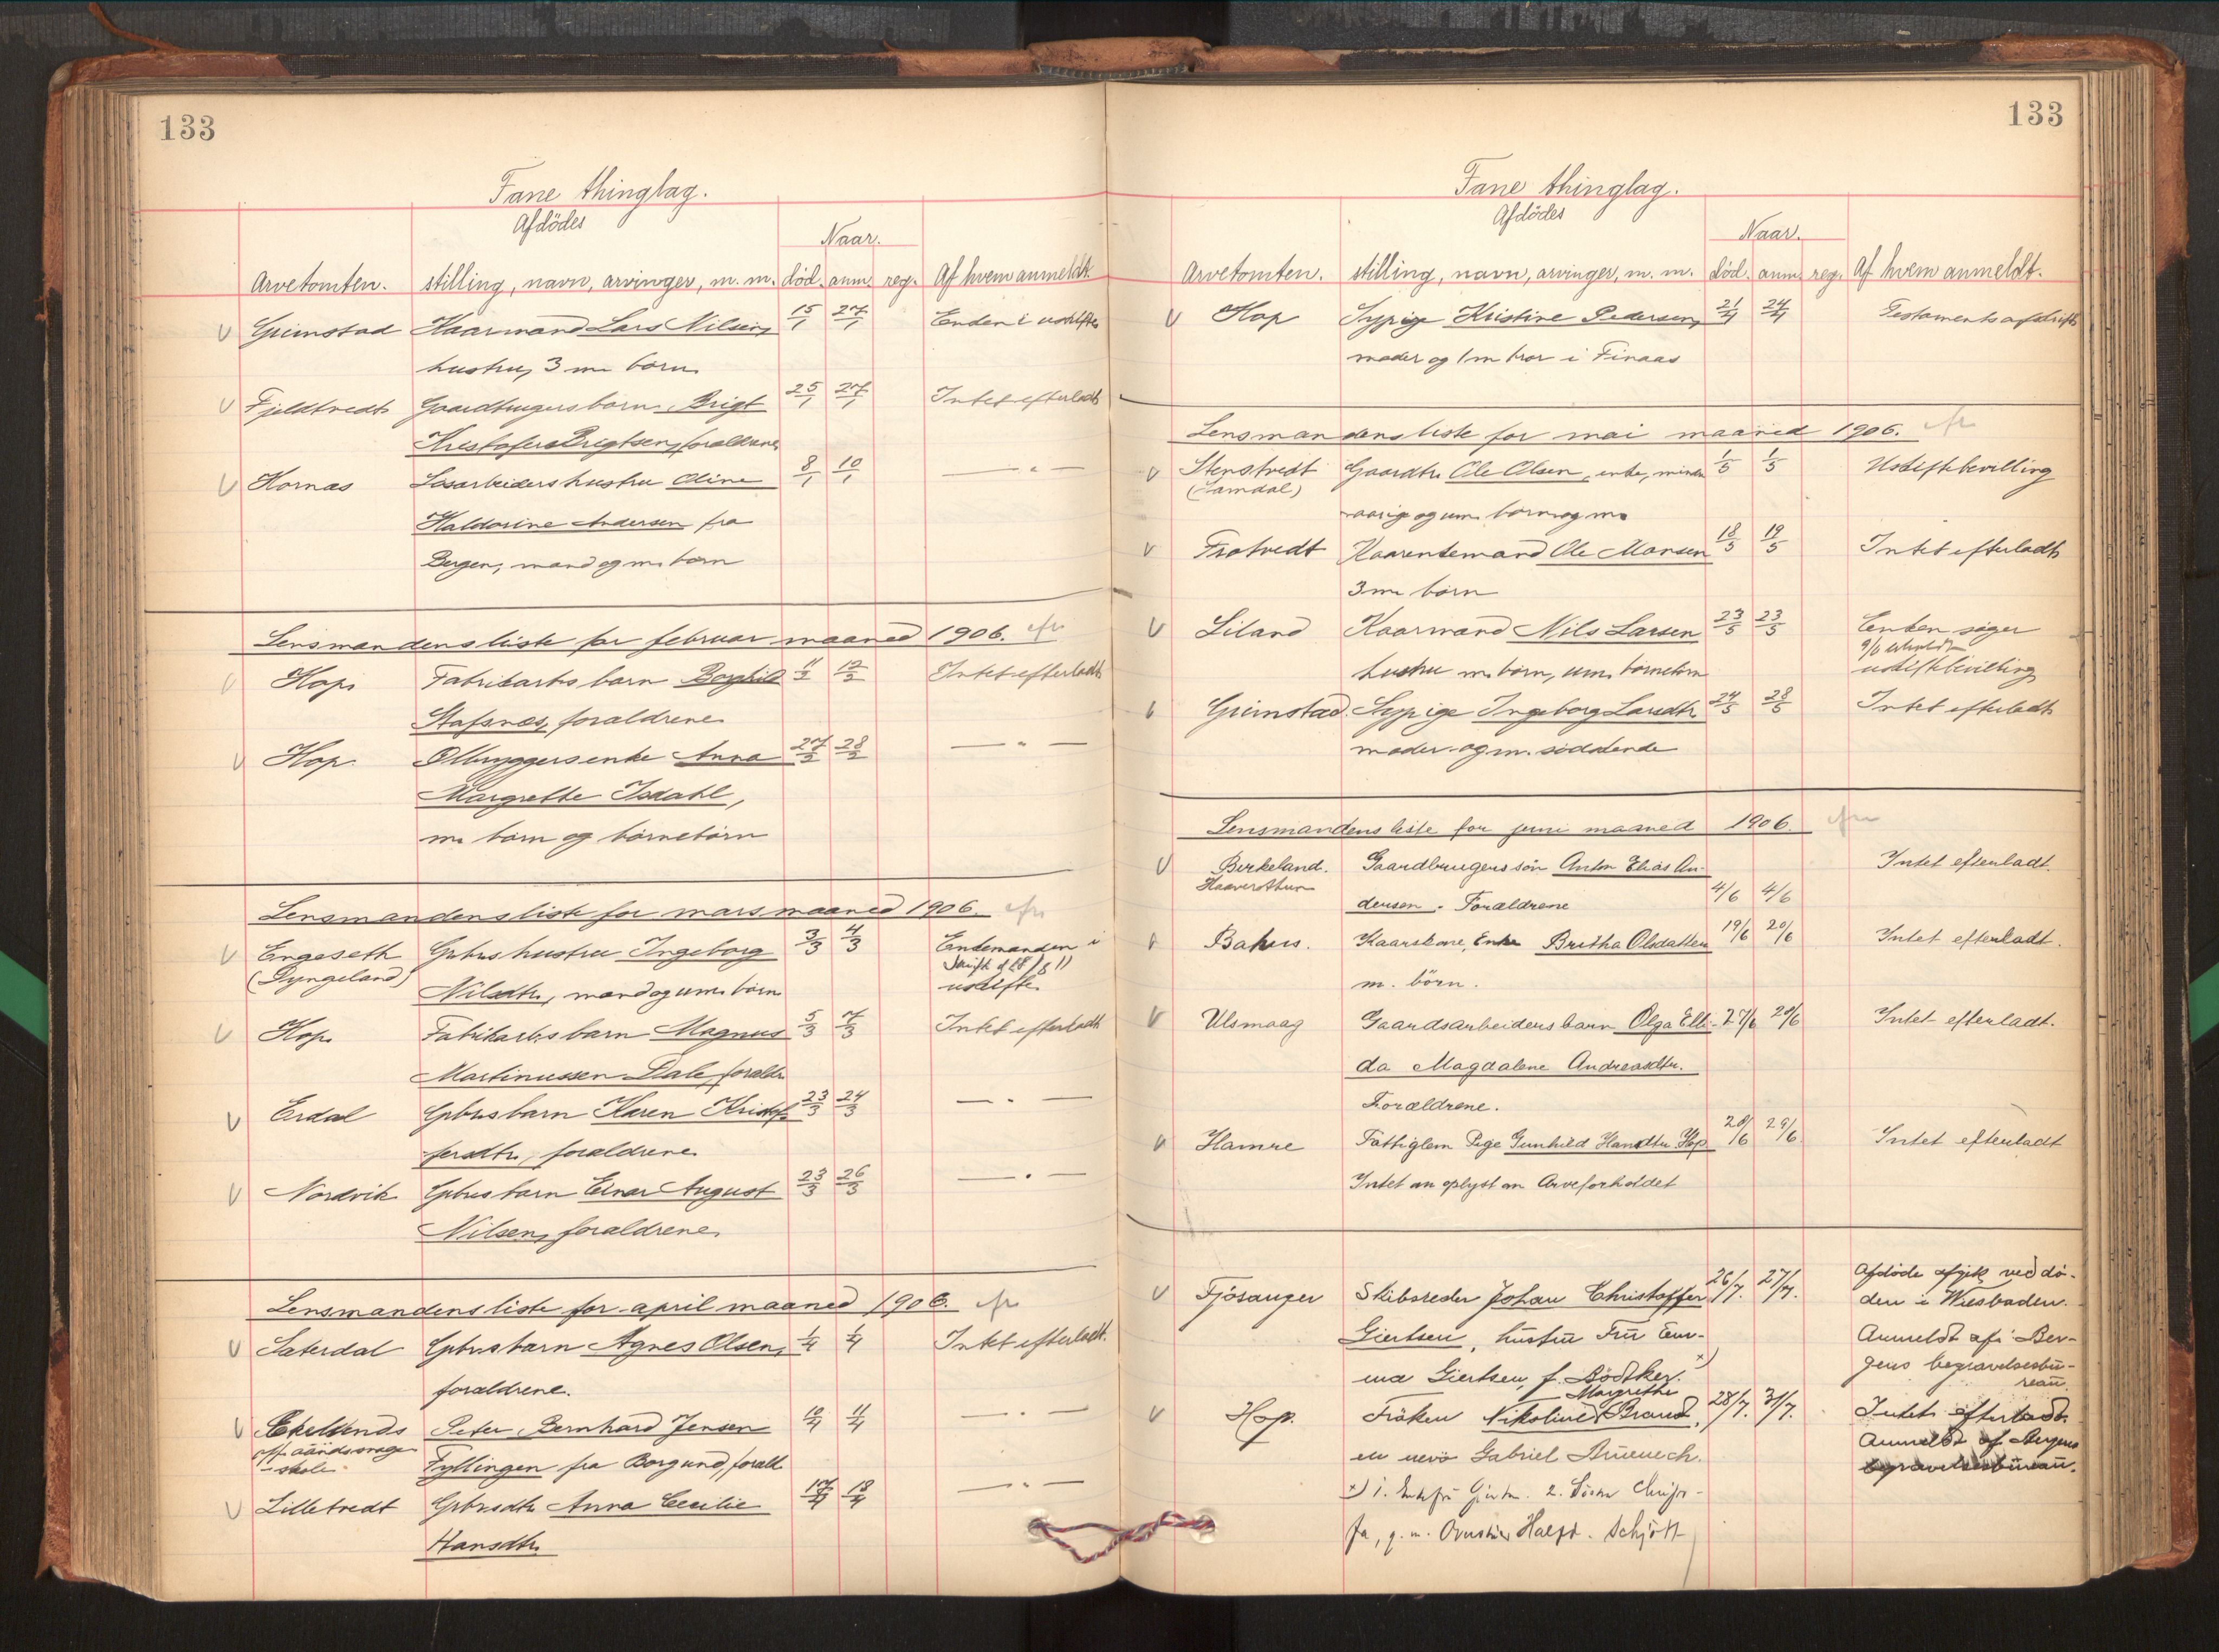 133
Fane thinglag.
Afdödes
Naar.
Arvetomten. stilling, navn, arvinger, m. m. död. anm. reg. Af hvem anmeldt.
Grimstad Kaarmand Lars Nilsen, 15/1 27/1 Enken i uskifte
hustru, 3 m. børn
Fjeldtvedt Gaardbrugers barn Brigt 25/1 27/1 Intet efterladt
Kristofer Brigtsen, forældrene
Hornæs Løsarbeiders hustru Oline 8/1 10/1 — " —
Haldorine Andersen fra
Bergen, mand og m. børn
Lensmandens liste for februar maaned 1906.
Hop Fabrikarb.s barn Borghild 11/2 12/2 Intet efterladt
Stafsnes, forældrene
Hop. Ølbryggers enke Anna 27/2 28/2 — " —
Margrethe Isdahl,
m. børn og børnebørn
Lensmandens liste for mars maaned 1906.
Engeseth Gbrs hustru Ingeborg 3/3 4/3 Enkemanden i
(Dyngeland) Nilsdtr, mand og um. børn uskifte
Hop Fabrikarb.s barn Magnus 5/3 7/3 Intet efterladt
Martinussen Dale, forældr.
Erdal Gbrs barn Karen Kristof- 23/3 24/3 — " —
fersdtr, forældrene
Nordvik Gbrs barn Einar August 23/3 26/3 — " —
Nilsen, forældrene
Lensmandens liste for april maaned 1906.
Sæterdal Gbrs barn Agnes Olsen, 1/4 1/4 Intet efterladt.
forældrene.
Peter Bernhard Jensen 10/4 11/4 — " —
skole Fyllingen fra Borgund, foræld.
Lilletvedt Gbrs dtr Anna Cecilie 17/4 18/4 — " —
Hansdtr
133
Fane thinglag.
Afdödes
Naar.
Arvetomten. stilling, navn, arvinger, m. m. död. anm. reg. Af hvem anmeldt.
Hop Sypige Kristine Pedersen, 21/4 24/4 Testamentsafskrift
moder og 1 m. bror i Finaas
Lensmandens liste for mai maaned 1906.
Stenstvedt Gaardbr. Ole Olsen, enke, minder 1/5 1/5 Uskiftebevilling
(Samdal) aarig og um. børn og m.
Frotvedt Kaarenkemand Ole Monsen 18/5 19/5 Intet efterladt
3 m. børn
Liland Kaarmand Nils Larsen 23/5 23/5 Enken søger
hustru m. børn, um. børnebørn uskiftebevilling
Grimstad. Sypige Ingeborg Larsdtr 24/5 28/5 Intet efterladt
moder og m. søskende
Lensmandens liste for juni maaned 1906.
Birkeland. Gaardbrugers søn Anton Elias An- Intet efterladt.
dersen. Forældrene 4/6 4/6
Kaarkone, Enke Britha Olsdatter 19/6 20/6 Intet efterladt.
m. börn.
Ulsmaag Gaardsarbeiders barn Olga Elli- 27/6 28/6 Intet efterladt.
da Magdalene Andreasdtr.
Forældrene.
Hamre Fattiglem Pige Gunhild Hansdtr Hop 28/6 29/6 Intet efterladt
Intet an oplyst om Arveforholdet
Fjösanger Skibsreder Johan Christoffer 26/7. 27/7. Afdöde afgik ved dö-
Giertsen, hustru Fru Em- den i Wiesbaden.
ma Giertsen, f. Bödtker. x) Anmeldt af Ber-
gens begravelsesbü-
reau.
Margrethe
Hop. Fröken Nikoline Brand, 28/7. 31/7. Intet efterladt.
en nevö Gabriel Anmeldt af Bergens
begravelsesbüreau.
x) 1. Enkefru 2.
g. m. Schjött